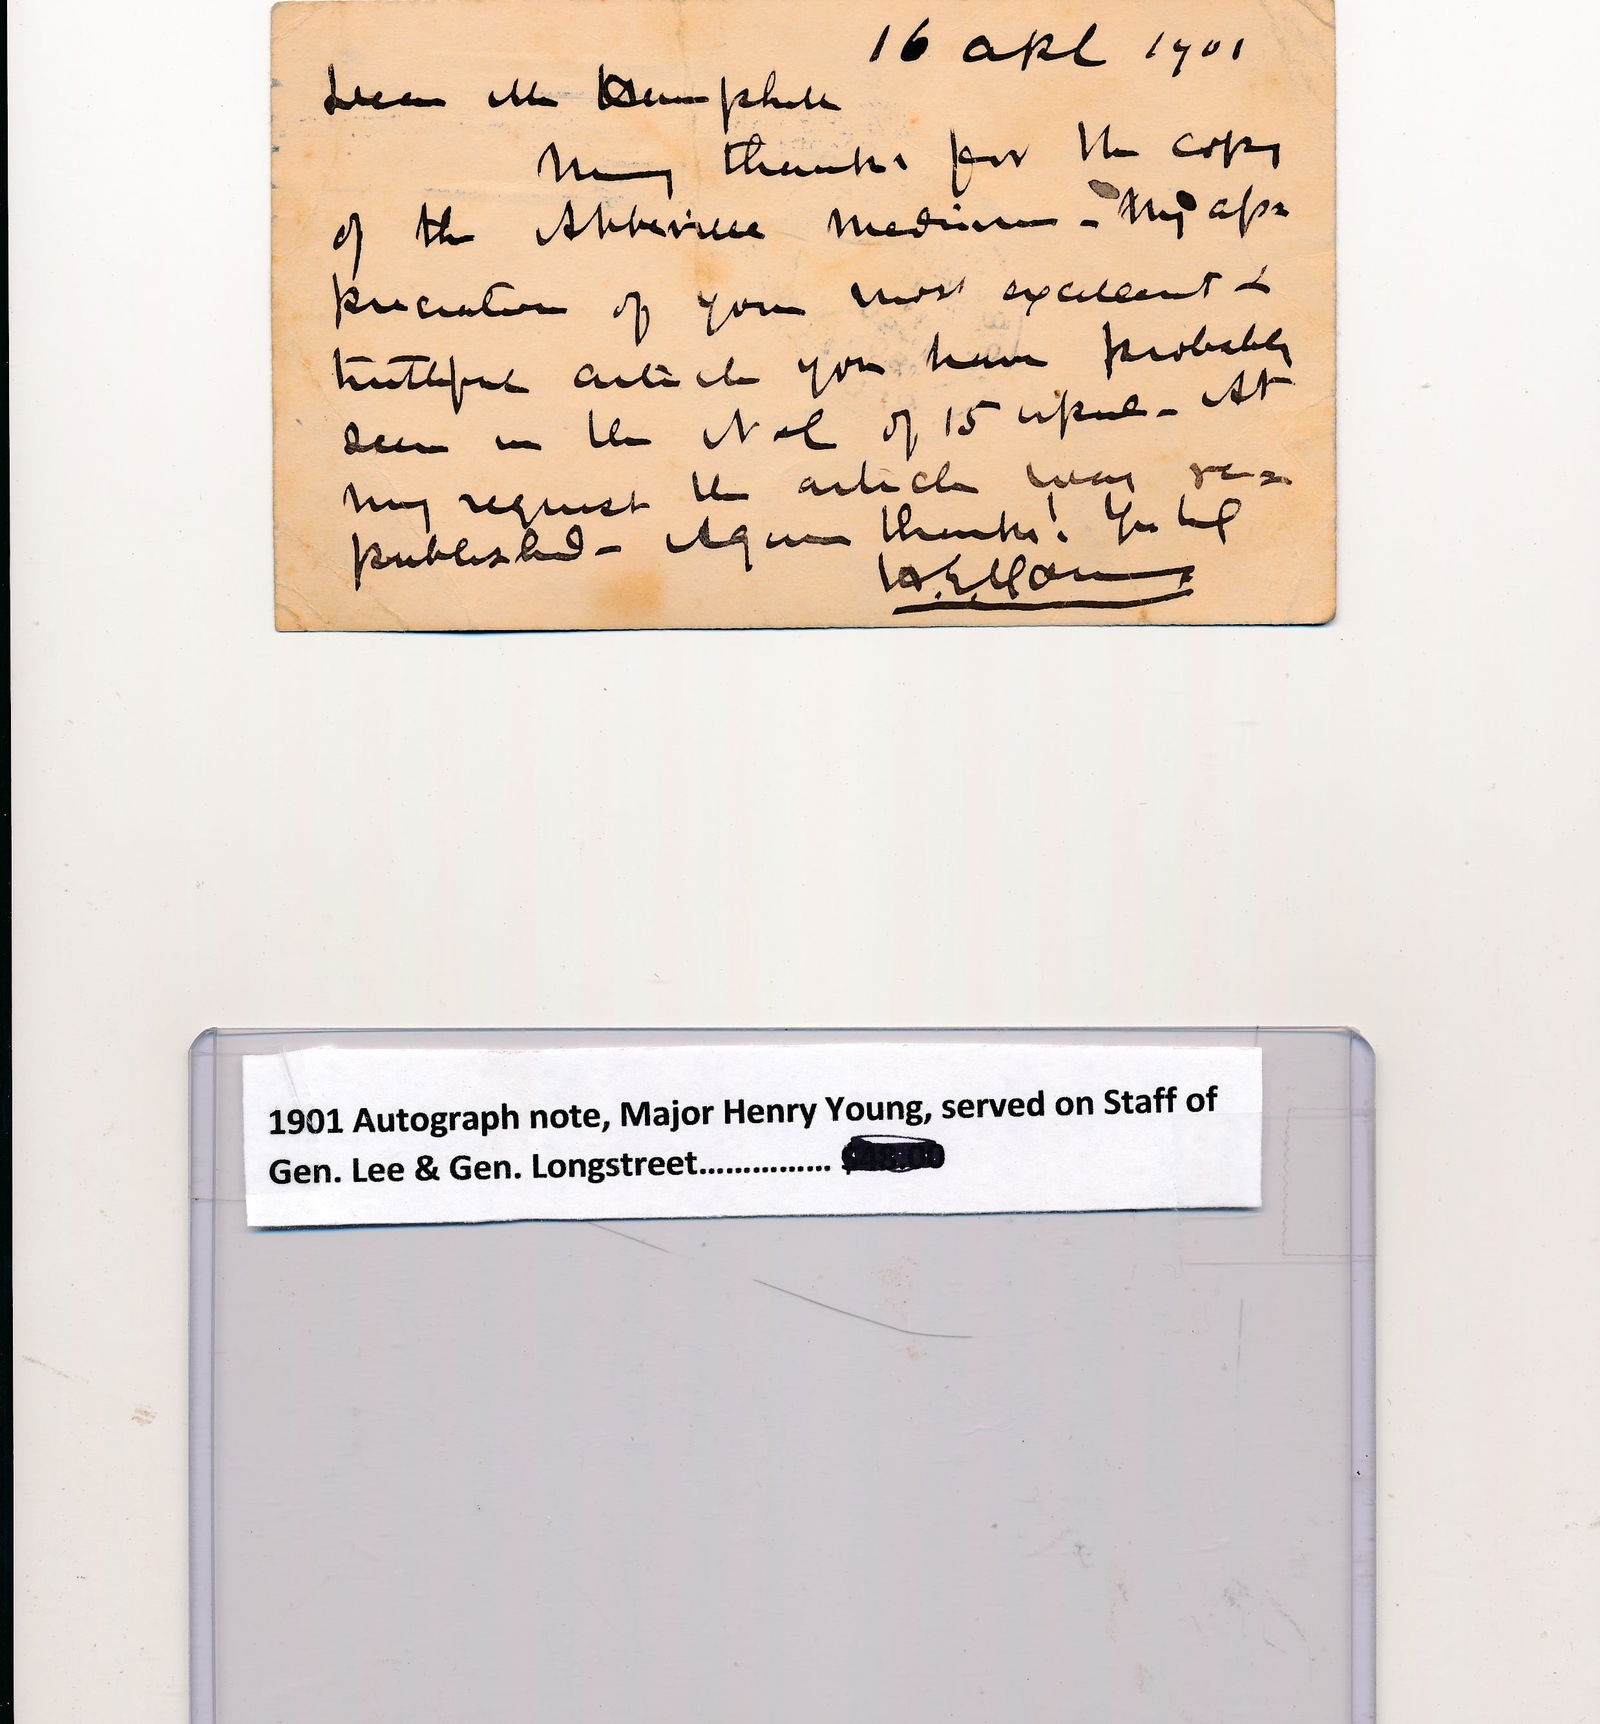 16 apl 1901
Dear Mr Hemphill
Many thanks for the copy
of the Abbeville Medium - My ap=
preciation of your most excellent &
truthful article you have probably
seen in the N & C of 15 april - At
my request the article was re=
published - Again thanks! Yrs tly
H.E. Young
1901 Autograph note, Major Henry Young, served on Staff of
Gen. Lee & Gen. Longstreet................